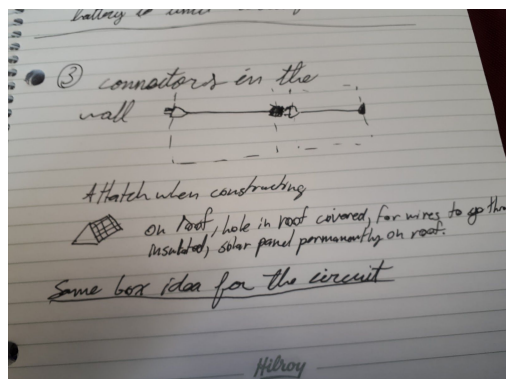 battery to
③ connectors in the
wall
Attatch when constructing
on roof, hole in roof covered, for wires to go thru
insulated, solar panel permanently on roof.
Same box idea for the circuit
Hilroy